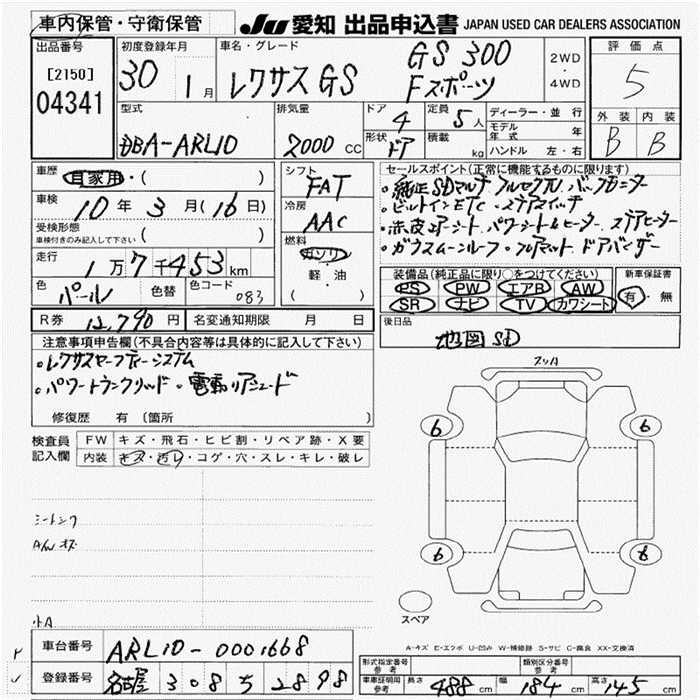 車内保管・守衛保管
JU 愛知 出品申込書 JAPAN USED CAR DEALERS ASSOCIATION
出品番号
[2150]
04341
初度登録年月
30 1月
車名・グレード
レクサス GS GS 300
Fスポーツ
2WD
・
4WD
評価点
5
外装 内装
B B
型式
DBA-ARL10
排気量
2000 CC
ドア
4
形状
ドア
定員
5人
積載
kg
ディーラー・並行
モデル年式 年
ハンドル 左・右
車歴
自家用・( )
車検
10年3月(16日)
受検形態
車検付きのみ記入して下さい ( )
走行
1万7千453km
色
パール
色替
色コード
083
シフト
FAT
冷房
AAC
燃料
ガソリン
軽・油
( )
セールスポイント(正常に機能するものに限ります)
・純正SDマルチ フルセグTV バックモニター
・ビルトインETC ・ステアスイッチ
・赤皮エアーシート パワーシート&ヒーター ステアヒーター
・ガラスムーンルーフ ・フロアマット ドアバイザー
装備品(純正品に限り○をつけてください)
PS PW エアB AW
SR ナビ TV カワシート
新車保証書
有・無
R券 12,790円
名変通知期限 月 日
後日品
地図SD
注意事項申告欄(不具合内容等は具体的に記入して下さい)
・レクサスセーフティーシステム
・パワートランクリッド ・電動リアシェード
修復歴 有(箇所 )
検査員
記入欄
FW キズ・飛石・ヒビ割・リペア跡・X要
内装 キズ・汚レ・コゲ・穴・スレ・キレ・破レ
シートシワ
A/W キズ
小A
スリA
6 6
6 6
スペア
A-キズ E-エクボ U-凹み W-補修跡 S-サビ C-腐食 XX-交換済
車台番号 ARL10-0001668
登録番号 名古屋 308 ち 2898
形式指定番号
参考
類別区分番号
参考
車車証明用
参考
長さ 488cm 幅 184cm 高さ 145cm